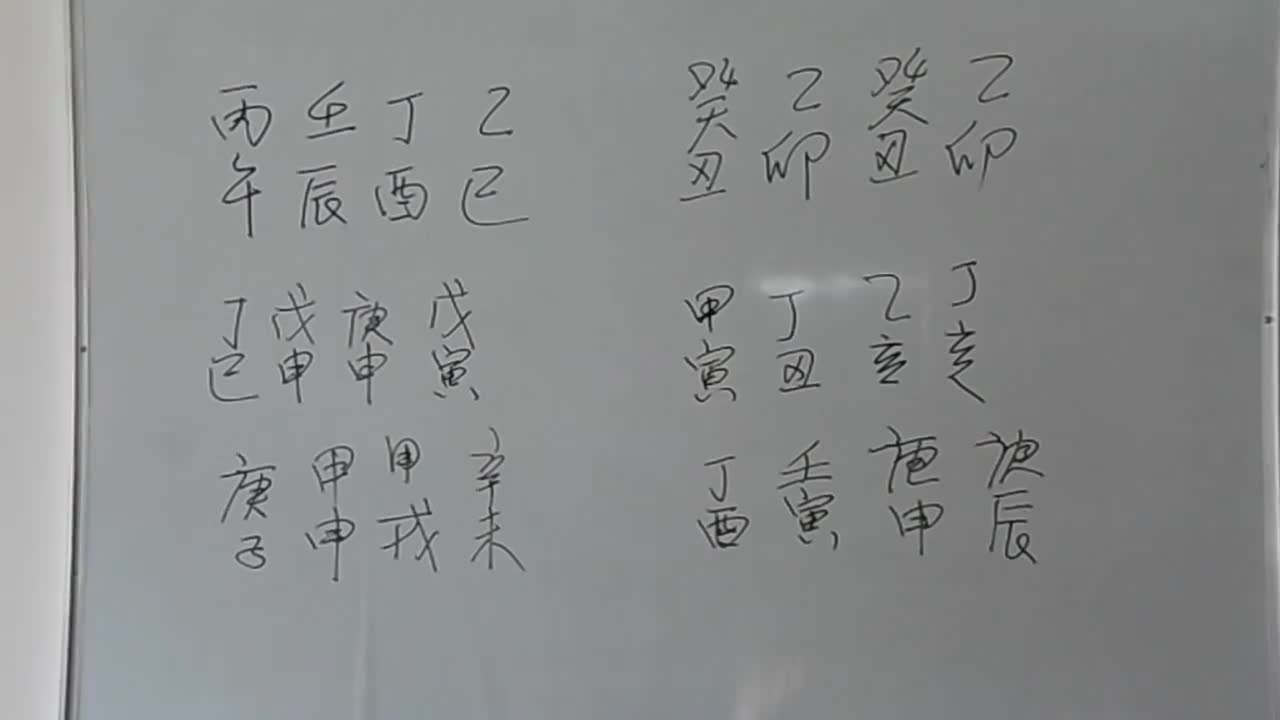 丙壬丁乙
午辰酉巳
癸乙癸乙
丑卯丑卯
丁戊庚戊
巳申申寅
甲丁乙丁
寅丑亥亥
庚甲甲辛
子申戌未
丁壬庚庚
酉寅申辰